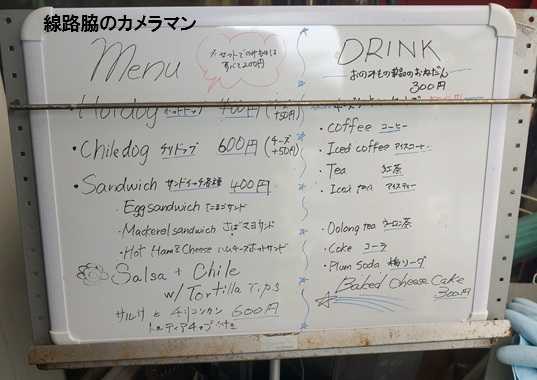 線路脇のカメラマン
Menu
※セットでのみものは
すべて200円
Hotdog ホットドッグ 400円 (チーズ +50円)
・Chiledog チリドッグ 600円 (チーズ +50円)
・Sandwich サンドイッチ各種 400円
・Egg sandwich たまごサンド
・Mackerel sandwich さばマヨサンド
・Hot Ham&Cheese ハムチーズホットサンド
Salsa + Chile
w/Tortilla
サルサとチリコンカン 600円
トルティアチップ付き
DRINK
おのみもの単品のおねだん
300円
・Coffee コーヒー
・Iced coffee アイスコーヒー
・Tea 紅茶
・Iced tea アイスティー
・Oolong tea ウーロン茶
・Coke コーラ
・Plum Soda 梅ソーダ
Baked Cheese Cake
300円